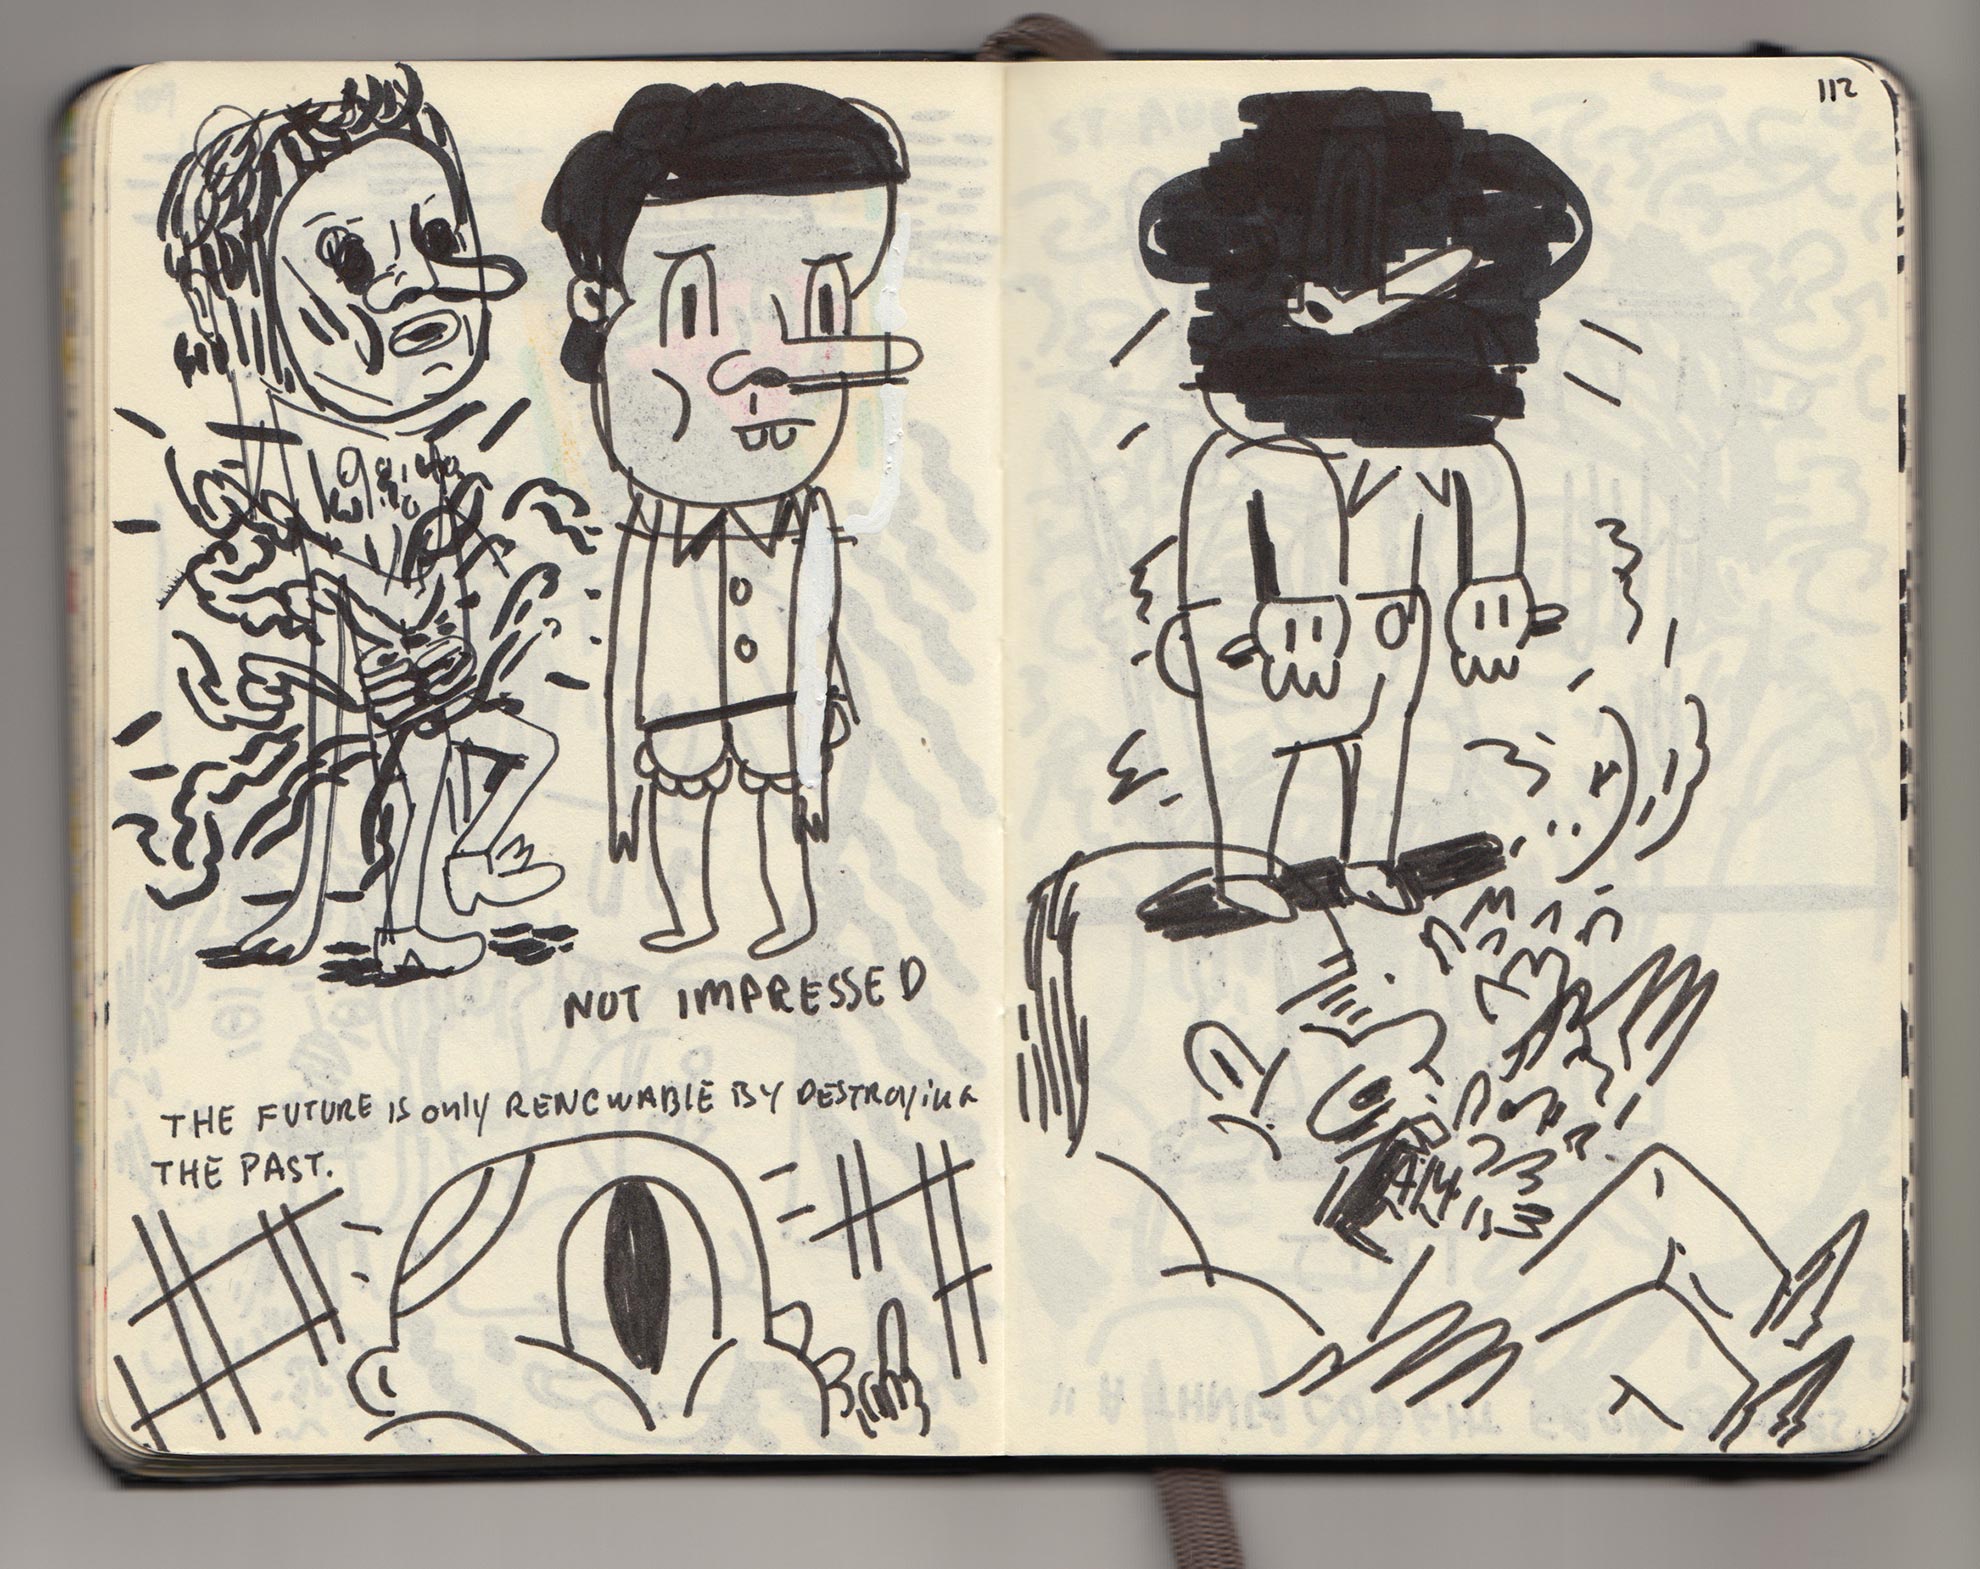 NOT IMPRESSED
THE FUTURE is only RENEWABLE BY DESTROYinG
THE PAST.
112